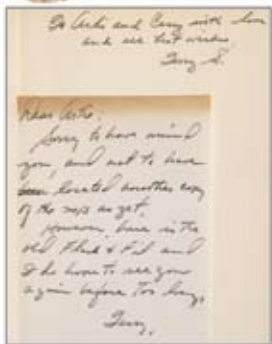 To Artie and Cary with love
and all best wishes
Terry S.
Dear Artie:
Sorry to have missed
you, and not to have
located another copy
of the as yet.
However, here is the
old Flash & Fil and
I do hope to see you
again before too long,
Terry.